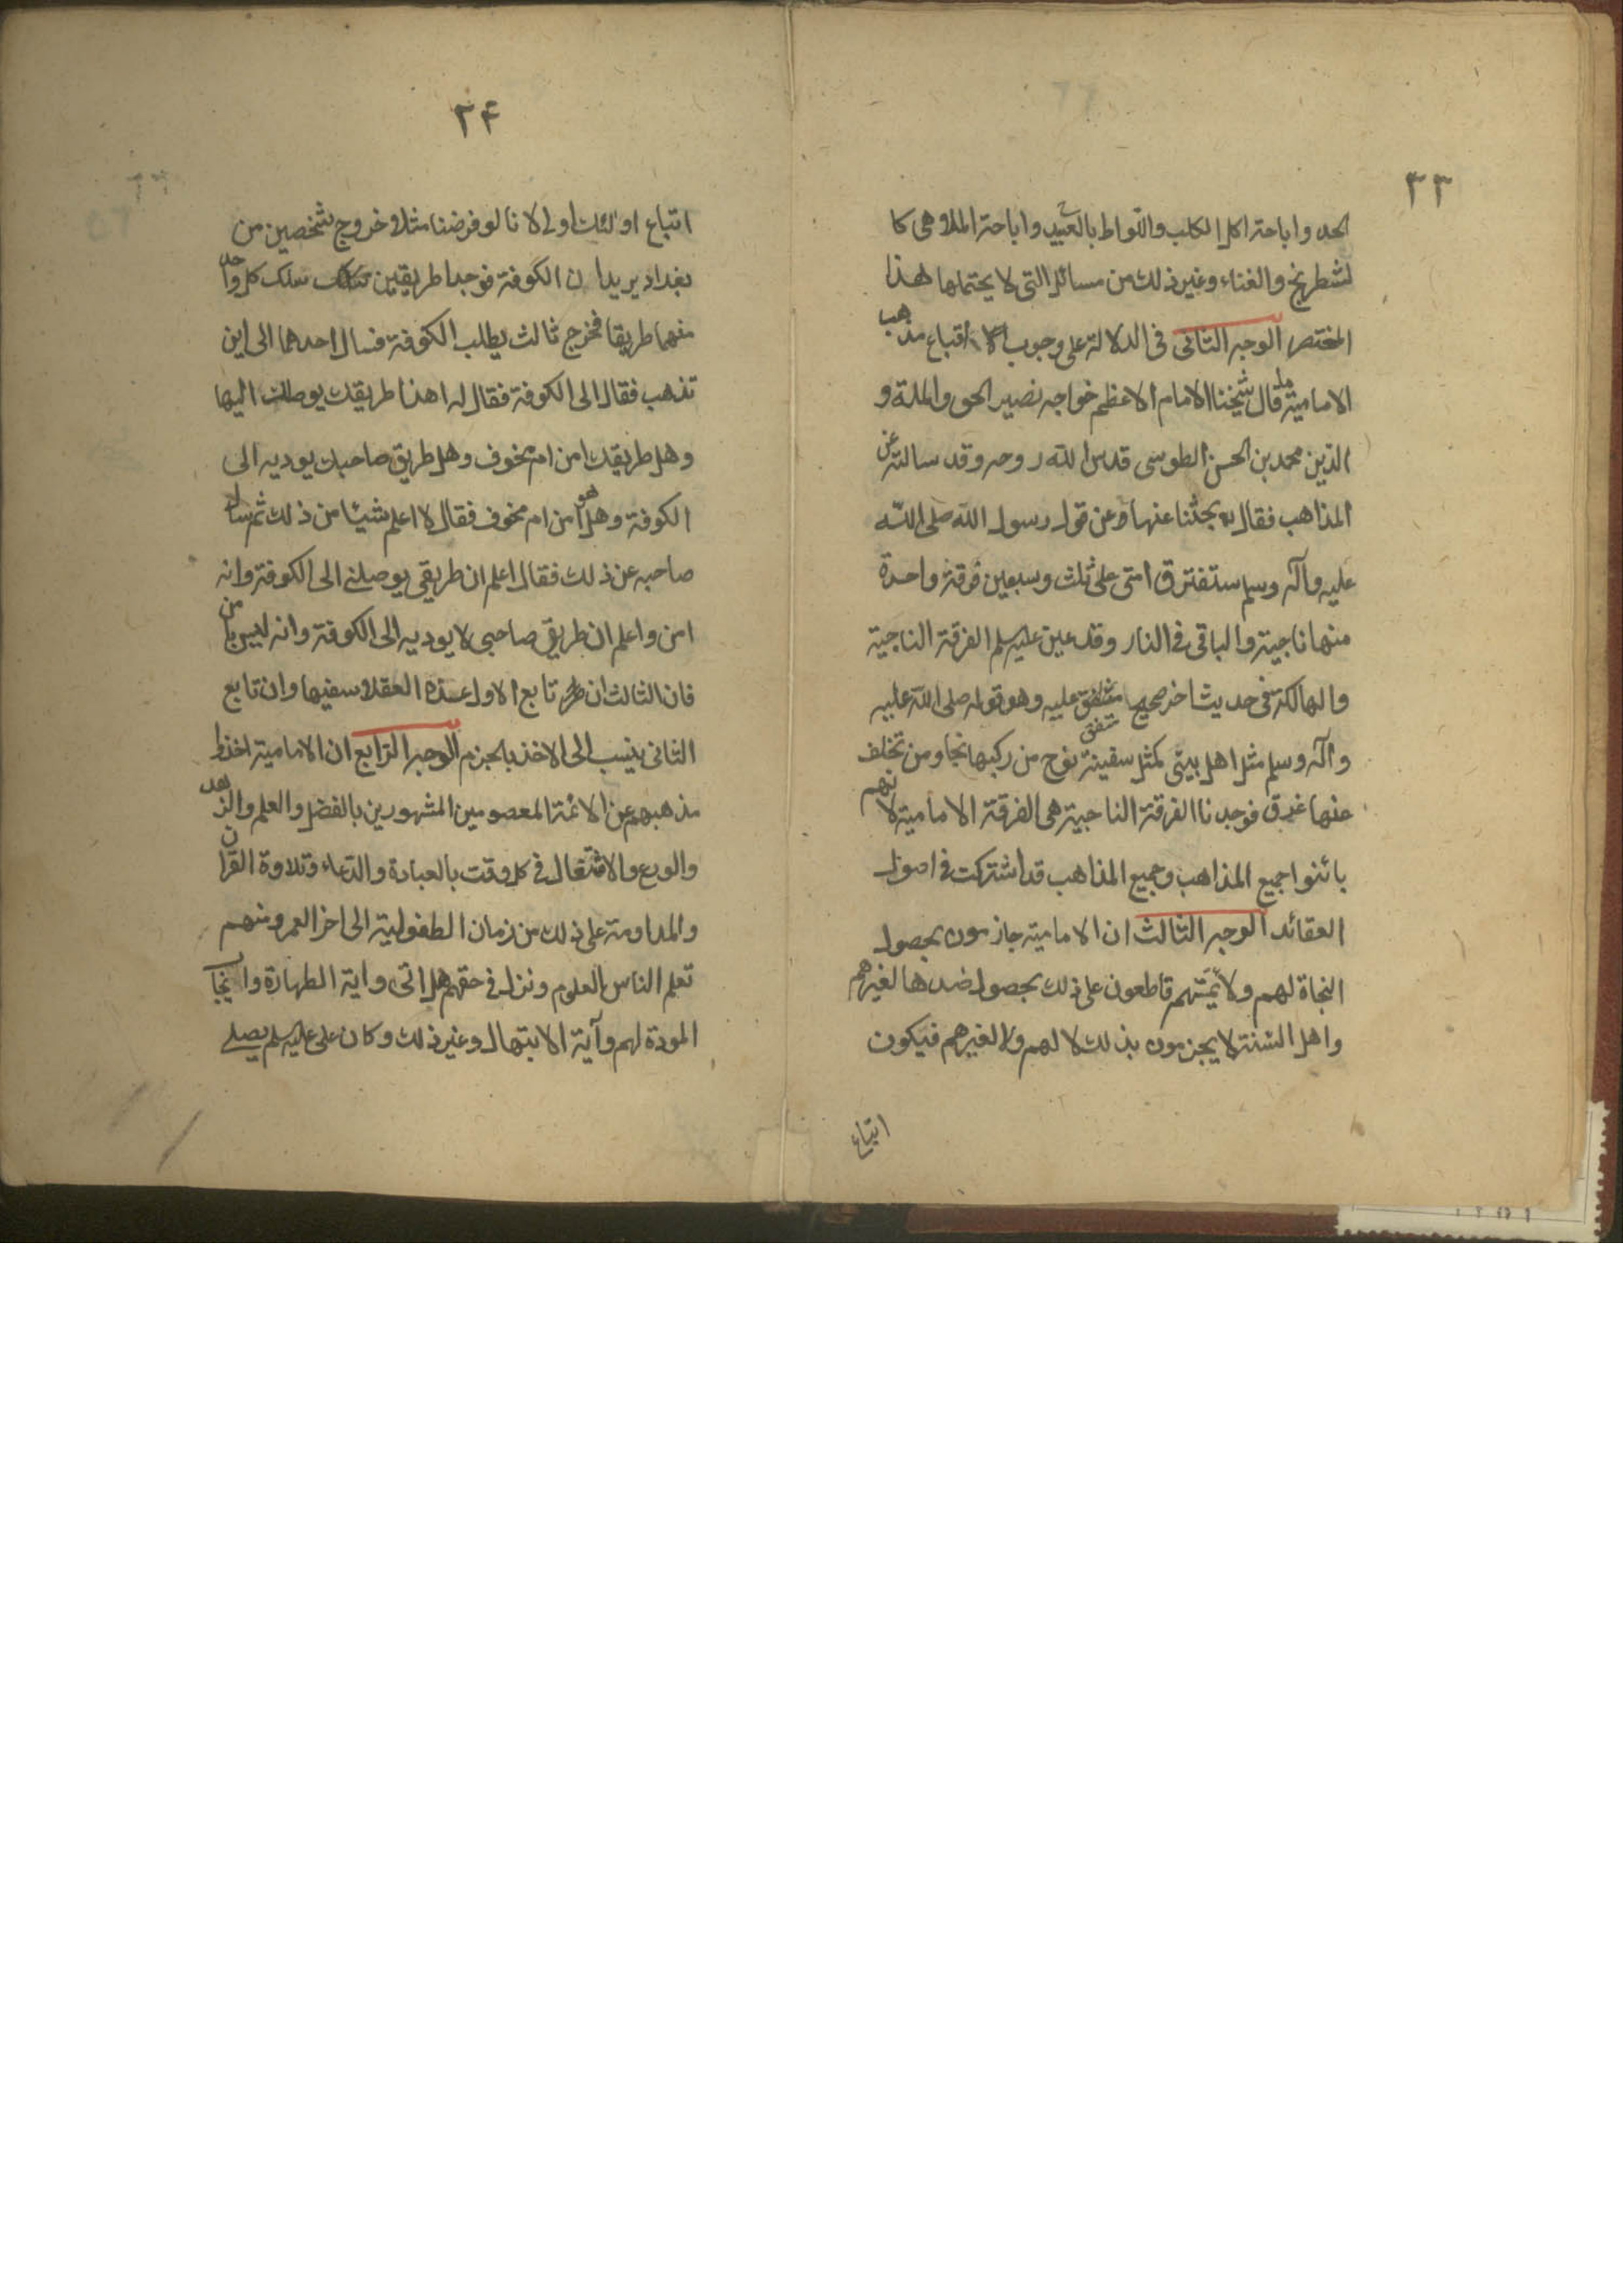 ٣٣
الحد واباحة اكل الكلب واللواط بالعبيد واباحة الملاهى كا
لشطرنج والغناء وغير ذلك من مسائل التى لا يحتملها هذا
المختصر الوجه الثانى فى الدلالة على وجوب اتباع مذهب
الامامية قال شيخنا الامام الاعظم خواجه نصير الحق والملة و
الدين محمد بن الحسن الطوسى قدس الله روحه وقد سالته عن
المذاهب فقال بحثنا عنها وعن قول رسول الله صلى الله
عليه وآله وسلم ستفترق امتى على ثلث وسبعين فرقة واحدة
منها ناجية والباقى فى النار وقد عين عليه سلم الفرقة الناجية
والهالكة فى حديث اخر صحيح متفق عليه وهو قوله صلى الله عليه
متفق
وآله وسلم مثل اهل بيتى كمثل سفينة نوح من ركبها نجا ومن تخلف
عنها غرق فوجدنا الفرقة الناجية هى الفرقة الامامية لانهم
بائنوا جميع المذاهب وجميع المذاهب قد اشتركت فى اصول
العقائد الوجه الثالث ان الامامية جازمون بحصول
النجاة لهم ولائمتهم قاطعون على ذلك بحصول ضدها لغيرهم
واهل السنة لا يجزمون بذلك لا لهم ولا لغيرهم فيكون
اتباع
٣۴
اتباع اولئك اولى لانا لو فرضنا مثلا خروج شخصين من
بغداد يريدان الكوفة فوجدا طريقين سلك كل واحد
منهما طريقا فخرج ثالث يطلب الكوفة فسال احدهما الى اين
تذهب فقال الى الكوفة فقال له اهذا طريقك يوصلك اليها
وهل طريقك امن ام مخوف وهل طريق صاحبك يوديه الى
الكوفة وهل هو امن ام مخوف فقال لا اعلم شيئا من ذلك ثم سال
صاحبه عن ذلك فقال اعلم ان طريقى يوصلنى الى الكوفة وانه
امن واعلم ان طريق صاحبى لا يوديه الى الكوفة وانه ليس بامن
فان الثالث ان تابع الاول عده العقلا سفيها وان تابع
الثانى ينسب الى الاخذ بالجزم الوجه الرابع ان الامامية اخذوا
مذهبهم عن الائمة المعصومين المشهورين بالفضل والعلم والزهد
والورع والاشتغال فى كل وقت بالعبادة والدعاء وتلاوة القران
والمداومة على ذلك من زمان الطفولية الى اخر العمر ومنهم
تعلم الناس العلوم ونزل فى حقهم هل اتى واية الطهارة وايجاب
المودة لهم وآية الابتهال وغير ذلك وكان على عليه سلم يصلى